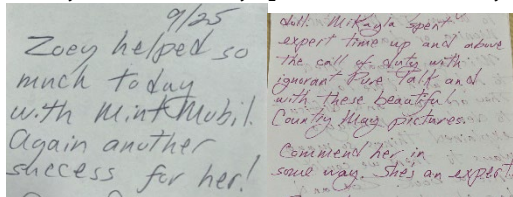 9/25
Zoey helped so
much today
with Mint Mobil.
Again another
success for her!
doll. MiKayla spent
expert time up and above
the call of duty with
ignorant Pure Talk and
with these beautiful
Country Mag pictures.
Commend her in
some way. She's an expert!